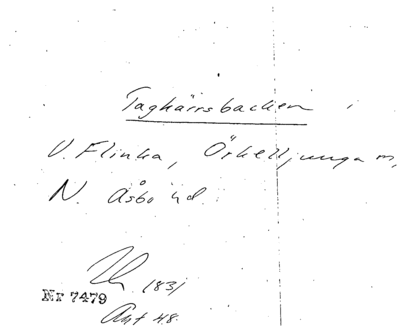 Taghärrsbacken i
V. Flinka, Örkelljunga sn,
N. Åsbo hd.
1831
Nr 7479
Ant 48.